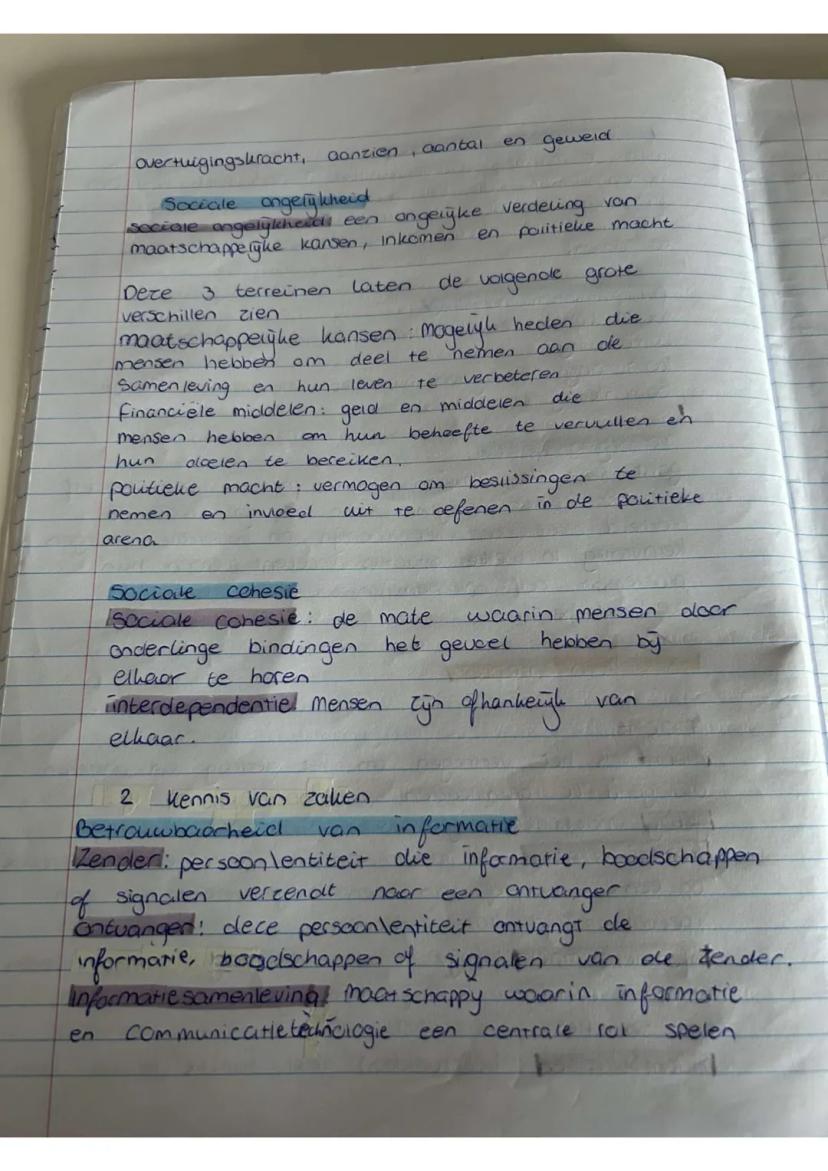 overtuigingskracht, aanzien, aantal en geweld
Sociale ongelijkheid
sociale ongelijkheid: een ongelijke verdeling van
maatschappelijke kansen, inkomen en politieke macht
Deze 3 terreinen laten de volgende grote
verschillen zien
maatschappelijke kansen: mogelijk heden die
mensen hebben om deel te nemen aan de
Samenleving en hun leven te verbeteren
Financiële middelen: geld en middelen die
mensen hebben om hun behoefte te vervullen en
hun doelen te bereiken.
politieke macht: vermogen om beslissingen te
nemen en invloed uit te oefenen in de politieke
arena
Sociale cohesie
Sociale cohesie: de mate waarin mensen door
onderlinge bindingen het gevoel hebben bij
elkaar te horen
interdependentie mensen zijn afhankelijk van
elkaar.
2 Kennis van zaken
Betrouwbaarheid van informatie
Zender: persoon/entiteit die informatie, boodschappen
of signalen verzendt naar een ontvanger
ontvanger: deze persoon/entiteit ontvangt de
informatie, boodschappen of signalen van de zender.
Informatiesamenleving: maatschappij waarin informatie
en communicatietechnologie een centrale rol spelen